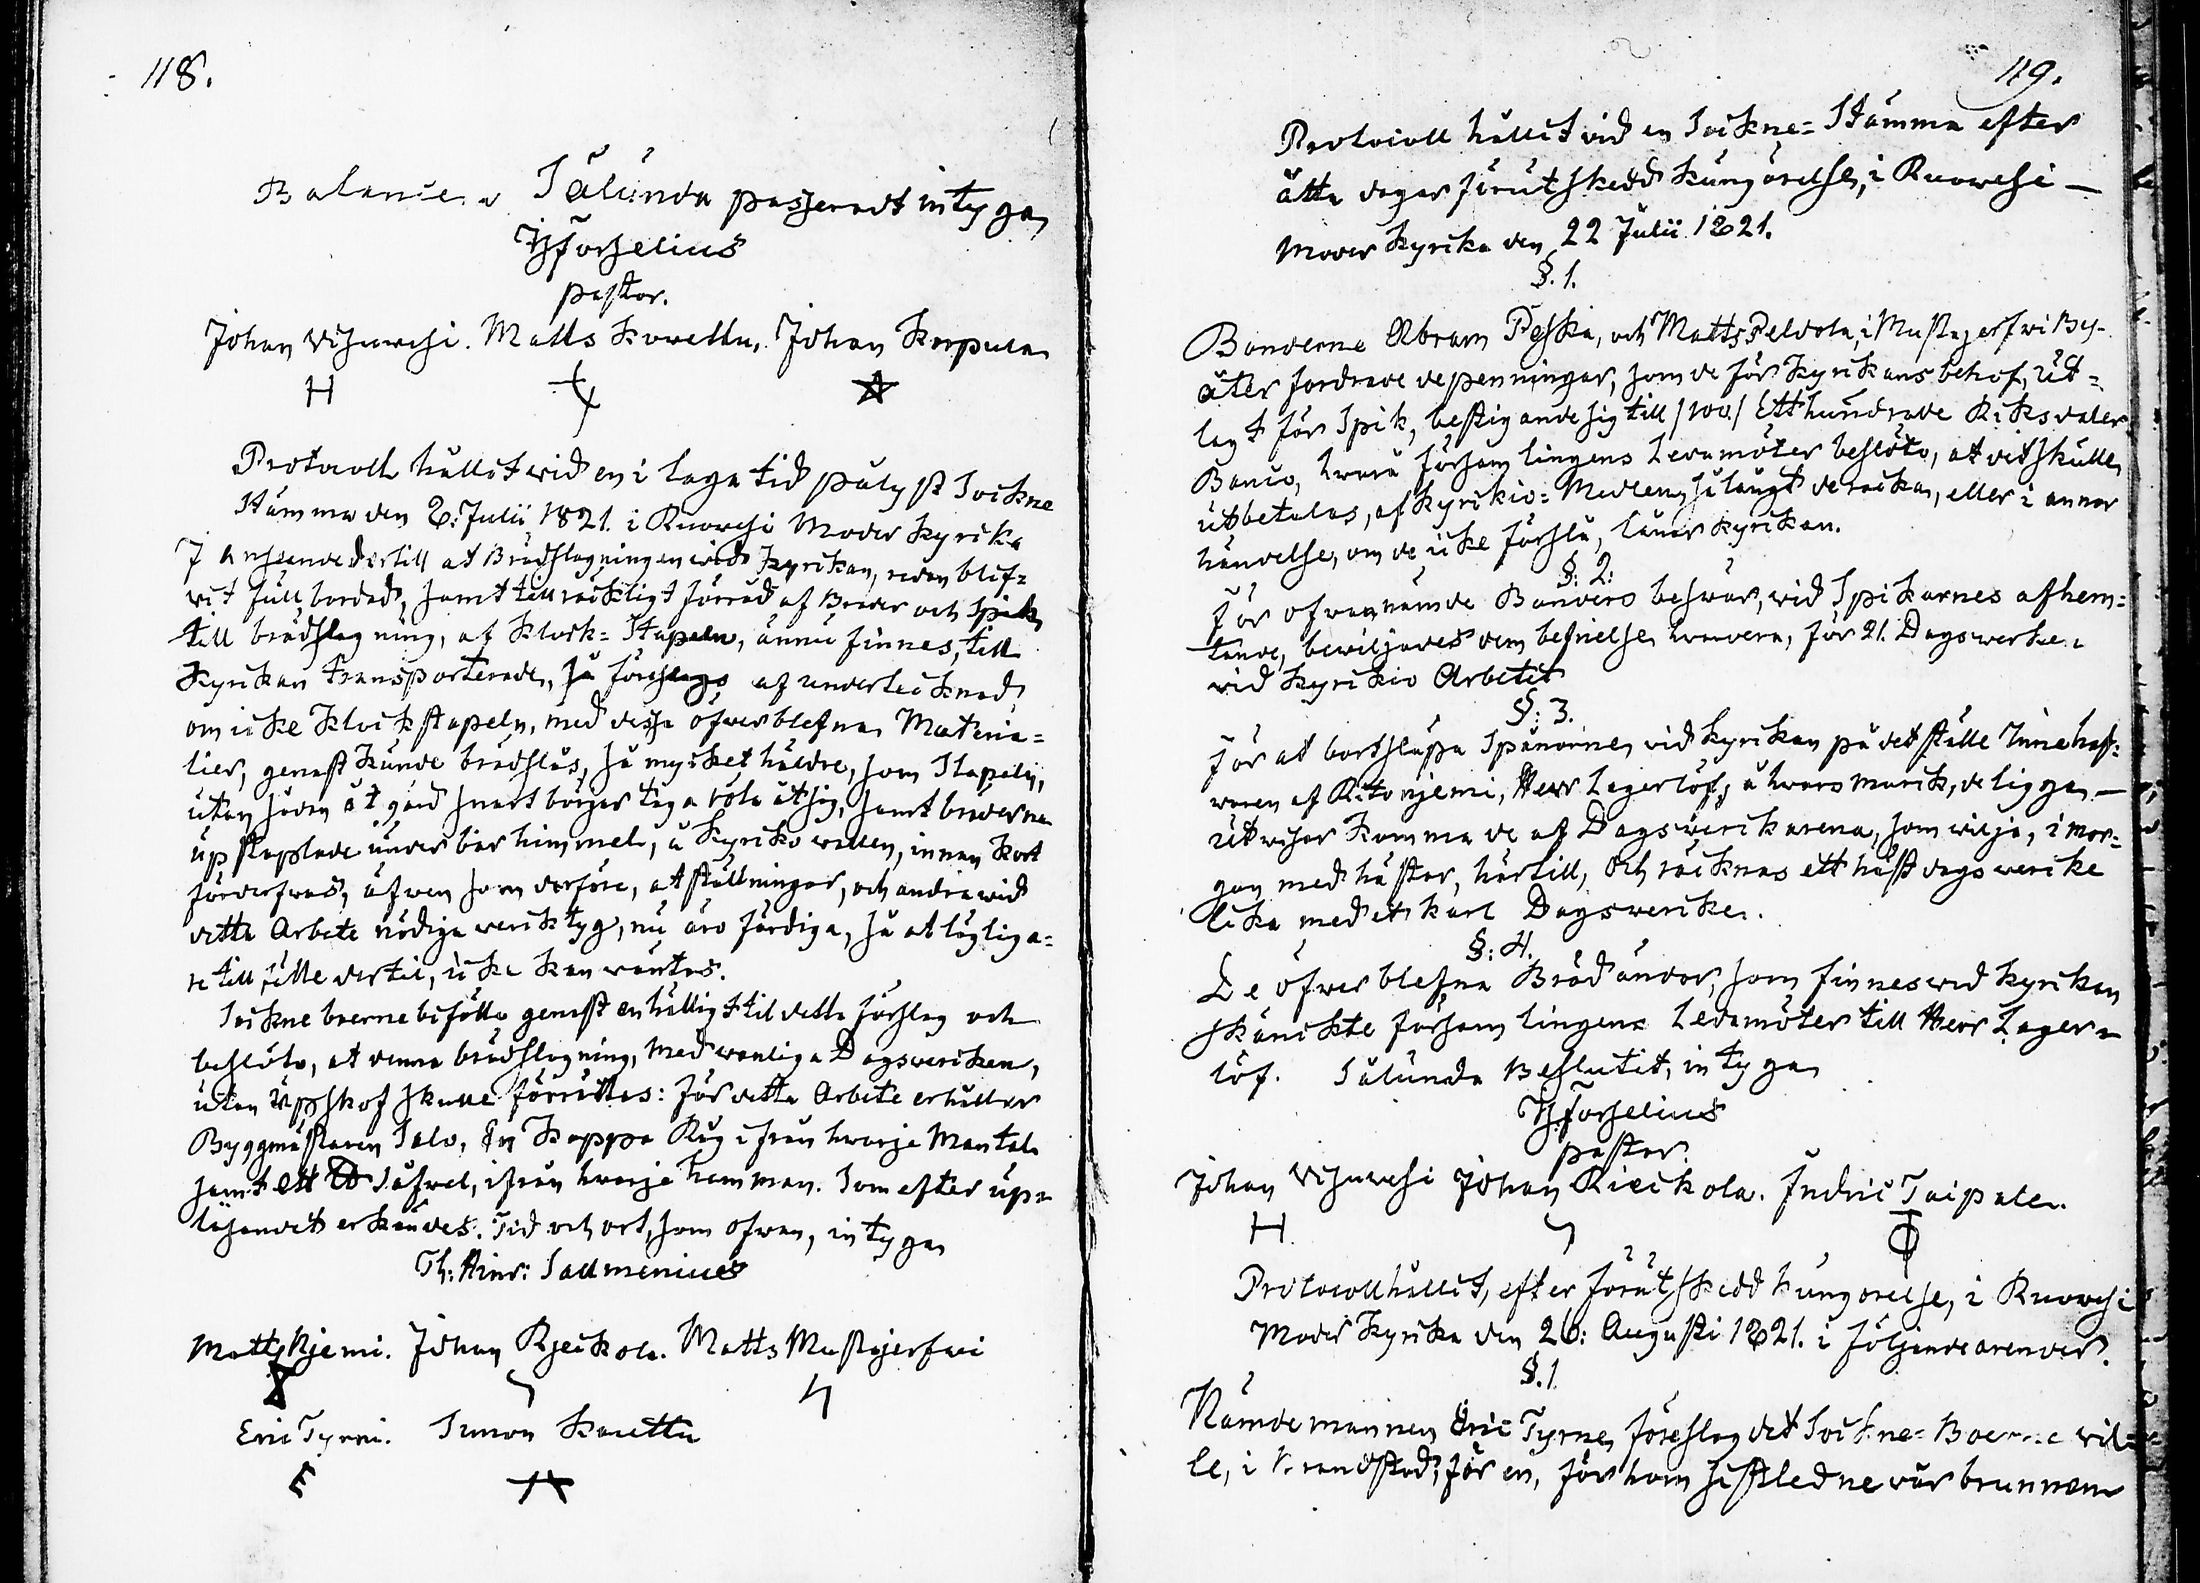 118.
Balancen Sålunda passeradt intygar
H Forselius
pastor.
Johan Vihuvesi. Matts Kovettu. Johan Karpula
Protocoll hållit wid en i laga tid pålyst Sockne
Stämma den 8: Julii 1821. i Ruovesi Moder Kyrka
I anseende dertill at Brädslagningen wid Kyrkan, redan blif=
wit fullbordad, samt tillräckligt förråd af Bräder och Spik,
till brädslagning, af Klock= Stapeln, ännu finnes, till
Kyrkan transporterade, så föreslogs af undertecknad,
om icke Klockstapeln, med desse öfwerblefna Materia=
lier, genast kunde brädslås, så mycket häldre, som Stapeln,
utan sådan åtgärd snart börjar taga röta åt sig, samt bräderna
upstaplade under bar himmel, å Kyrko wallen, innan kort
förderfwas, äfwen som derföre, at ställningar, och andra wid
detta Arbete nödiga wercktyg, nu äro färdiga, så at lägliga=
re tillfälle dertil, icke kan wäntas.
Sockne boerne biföllo genast enhälligt til detta förslag och
beslöto, at denna brädslagning, med wanliga Dagswercken,
utan Upskof skulle förrättas: För detta Arbete erhåller
Byggmästaren Salo, En Kappa Råg ifrån hwarje Mantal
samt ett ℔ Säfwel, ifrån hwarje hemman. Som efter up=
läsandet erkändes. Tid och ort, som ofwan, intygar
Th: Hinr: Sallmenius
Matts Kjemi. Johan Rjeckola. Matts Mustajerfwi
Eric Tyrni. Simon Kauttu
119.
Protocoll hållit wid en Sockne= Stämma efter
åtta dagar förut skedd kungörelse, i Ruowesi
Moder Kyrka den 22 Julii 1821.
§. 1.
Bönderne Abram Peska, och Matts Peldola, i Mustajerfwi By.
åter fordrade de penningar, som de för Kyrkans behof, ut=
lagt för Spik, bestigande sig till /100/ Etthundrade Riksdaler
Banco, hwarå församlingens Ledamöter beslöto, at det skulle
utbetalas, af Kyrkio= Medlen, så långt de räcka, eller i annor
händelse, om de icke förslå, lånar Kyrkan.
§: 2:
För ofwannämde Bönders beswär, wid Spikarnes afhem=
tande, bewiljades dem befrielse hwardera, för 21. Dagswerke.
wid Kyrkio Arbetet
§: 3.
För at bortsläpa Spånorne, wid Kyrkan på det ställe Innehaf=
waren af Ritoniemi, Herr Lagerlöf, å hwars marck, de ligga
utwisar komma de af Dagswerckarena, som wilja, i mor=
gon med hästar, härtill, och räcknas ett häst dagswercke
lika med et karl Dagswercke.
§: 4.
De öfwerblefna Brädändar, som finnes wid Kyrkan
skänckte församlingens Ledamöter till Herr Lager=
löf. Sålunda Beslutit, intygar
H Forselius
pastor.
Johan Vihuvesi Johan Rieckola. Indric Taipale.
Protocoll hållit, efter förut skedd kungörelse, i Ruowesi
Moder Kyrka den 26: Augusti 1821. i följande ärender.
§. 1
Nämdemannen Eric Tyrne, föreslog det Sockne= Boerne wil=
le, i brandstod, för en, för honom sistledne vår brunnen